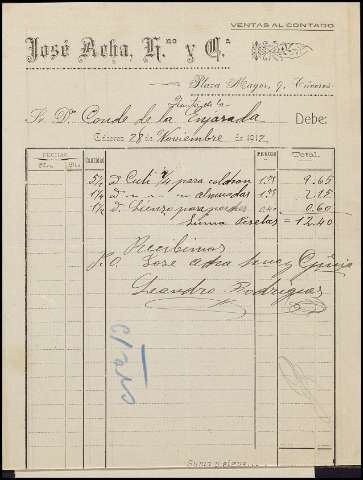 VENTAS AL CONTADO
José Acha, H.no y C.a
Plaza Mayor, 9, Cáceres
Sr. Dn. Conde de la Enjarada Debe:
Cáceres 28 de Noviembre de 1912
FECHAS CANTIDAD PRECIOS Total.
Mes. Día.
5½ D. Cutí ¼ para colchón 1.75 9.65
1¼ D. " " " almuadas 1.75 2.15
1½ D. Lienzo para 0.40 0.60
Suma Pesetas = 12.40
Recibimos
P. O. José Acha
Leandro Rodrigues
Suma y sigue